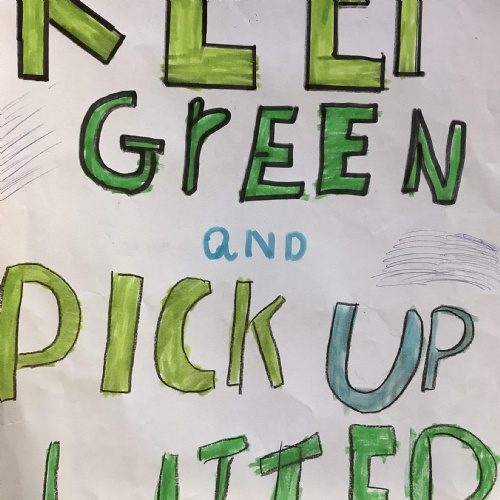 KEEP
GrEEN
aND
PICK UP
LITTER